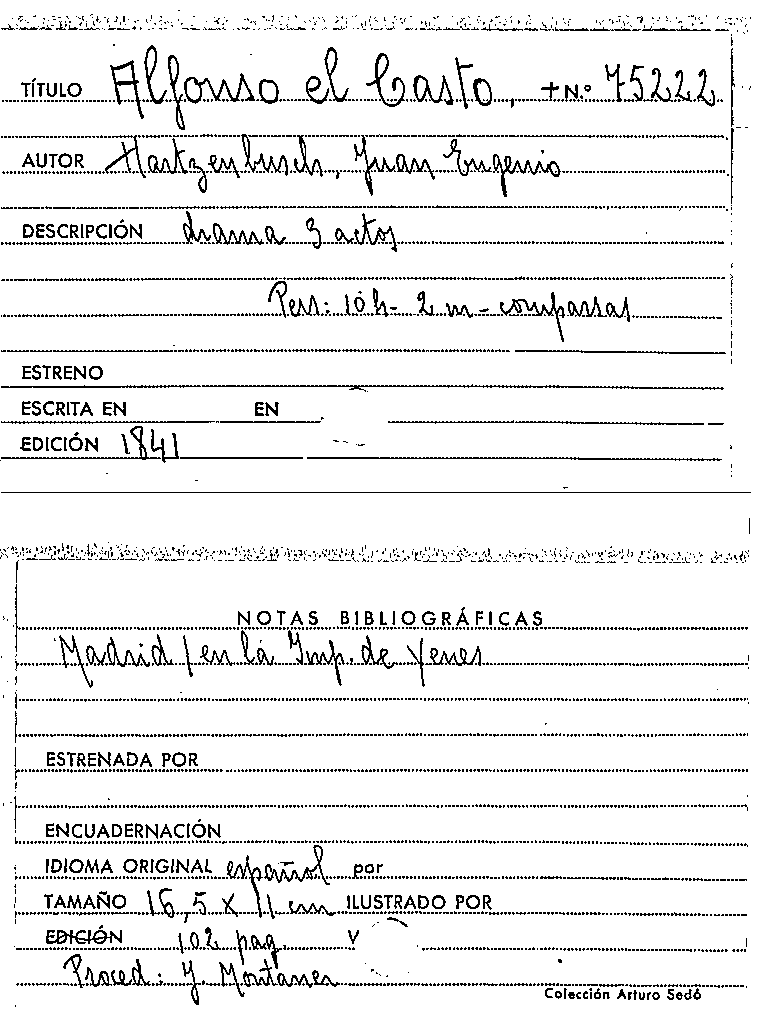 TÍTULO Alfonso el Casto, + N.º 75222
AUTOR Hartzenbusch, Juan Eugenio
DESCRIPCIÓN drama 3 actos
Pers: 10 h - 2 m - comparsas
ESTRENO
ESCRITA EN EN
EDICIÓN 1841
NOTAS BIBLIOGRÁFICAS
Madrid / en la Imp. de Yenes
ESTRENADA POR
ENCUADERNACIÓN
IDIOMA ORIGINAL español por
TAMAÑO 16,5 x 11 cm ILUSTRADO POR
EDICIÓN 102 pag. V
Proced: J. Montaner
Colección Arturo Sedó